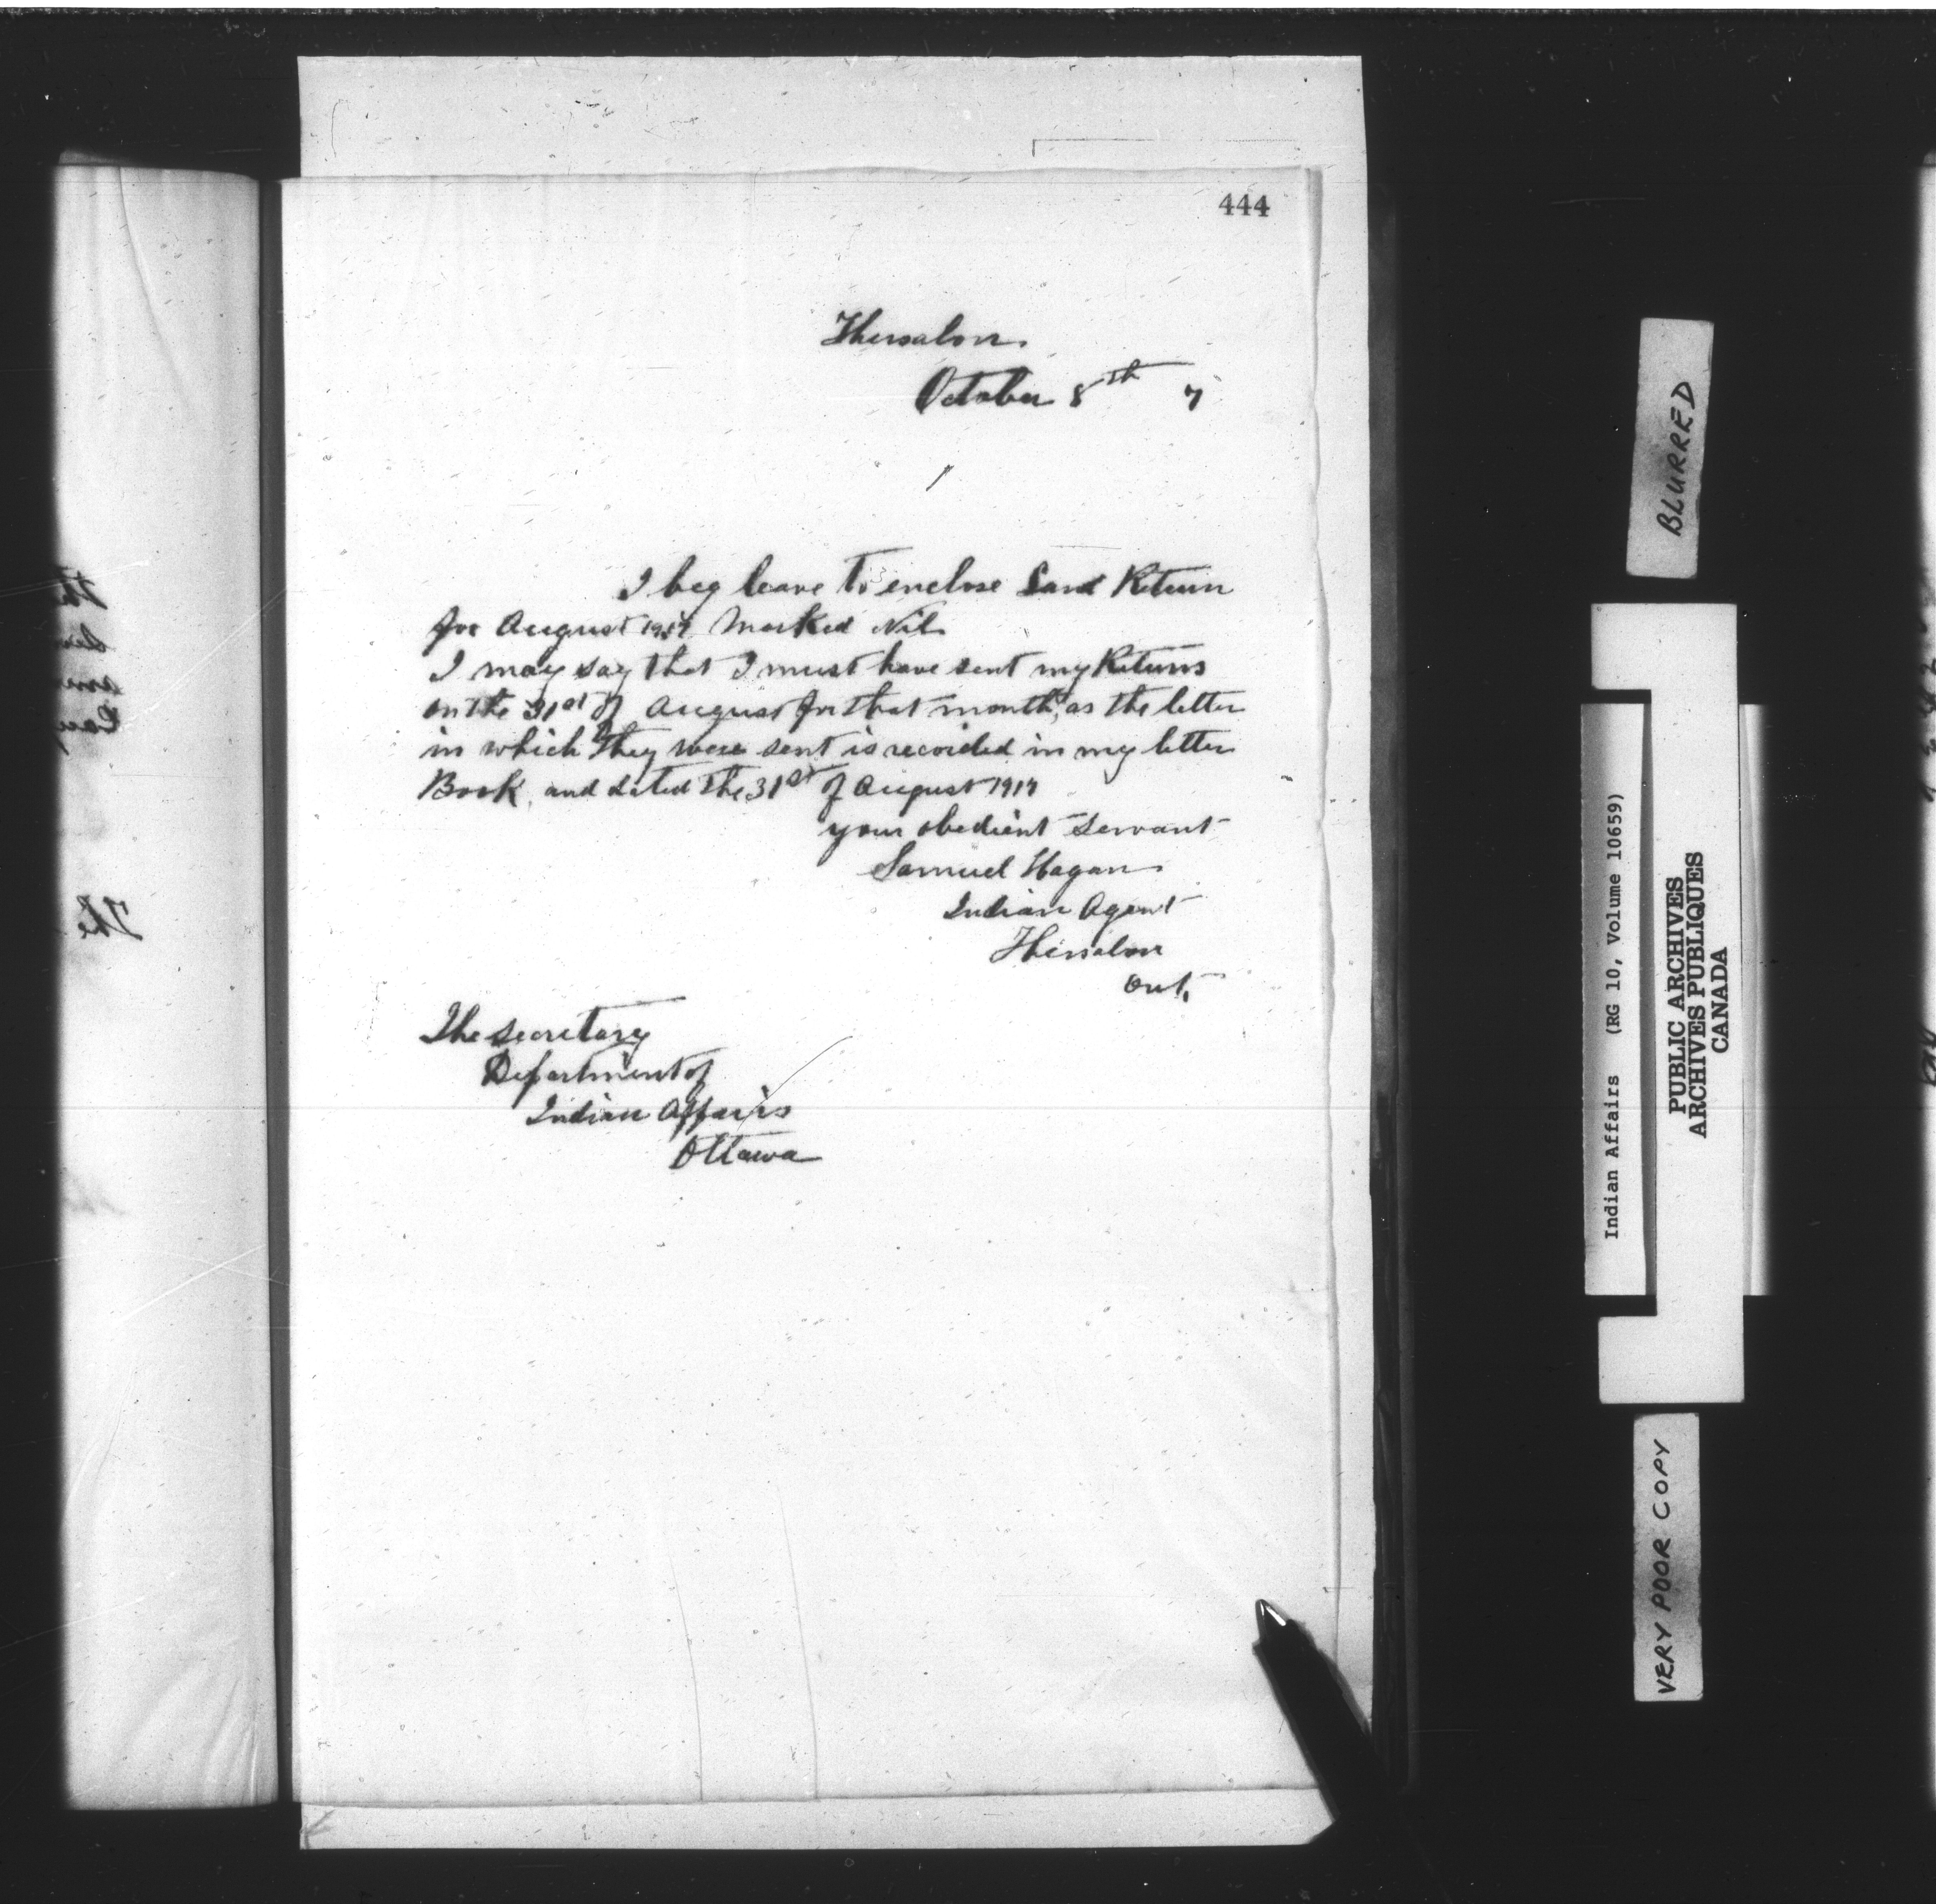 444
Thessalon
October 8th 7
I beg leave to enclose Land Return
for August 1917 Marked Nil
I may say that I must have sent my Returns
on the 31st of August for that month, as the letter
in which they were sent is recorded in my letter
Book, and dated the 31st of August 1917
your obedient servant
Samuel Hagan
Indian Agent
Thessalon
Ont,
The Secretary
Department of
Indian Affairs
Ottawa
The
BLURRED
Indian Affairs (RG 10, Volume 10659)
PUBLIC ARCHIVES
ARCHIVES PUBLIQUES
CANADA
VERY POOR COPY